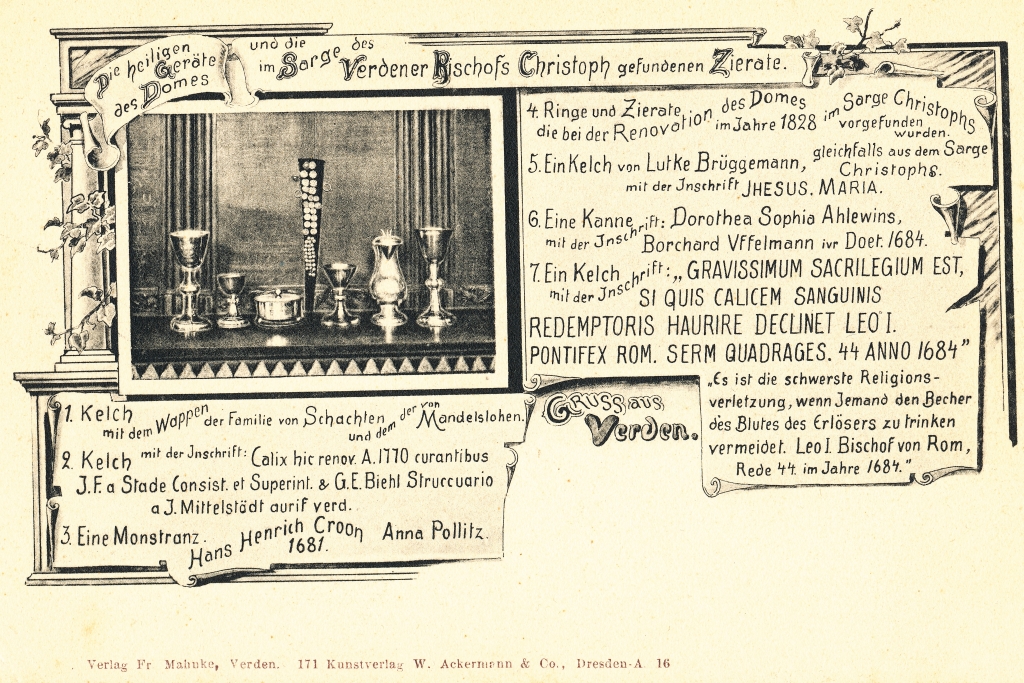 Die heiligen Geräte des Domes
und die im Sarge des Verdener Bischofs Christoph gefundenen Zierate.
1. Kelch mit dem Wappen der Familie von Schachten und dem der von Mandelslohen.
2. Kelch mit der Inschrift: Calix hic renov. A. 1770 curantibus
J.F. a Stade Consist. et Superint. & G.E. Biehl Struccuario
a J. Mittelstädt aurif verd.
3. Eine Monstranz. Hans Henrich Croon Anna Pollitz.
1681.
4. Ringe und Zierate, des Domes im Sarge Christophs
die bei der Renovation im Jahre 1828 vorgefunden wurden.
5. Ein Kelch von Lutke Brüggemann, gleichfalls aus dem Sarge Christophs.
mit der Inschrift JHESUS. MARIA.
6. Eine Kanne mit der Inschrift: Dorothea Sophia Ahlewins,
Borchard Vffelmann ivr Doet. 1684.
7. Ein Kelch mit der Inschrift: „GRAVISSIMUM SACRILEGIUM EST,
SI QUIS CALICEM SANGUINIS
REDEMPTORIS HAURIRE DECLINET LEO I.
PONTIFEX ROM. SERM QUADRAGES. 44 ANNO 1684”
„Es ist die schwerste Religions-
verletzung, wenn Jemand den Becher
des Blutes des Erlösers zu trinken
vermeidet. Leo I. Bischof von Rom,
Rede 44. im Jahre 1684.”
Gruss aus
Verden.
Verlag Fr. Mahnke, Verden. 171 Kunstverlag W. Ackermann & Co., Dresden-A. 16